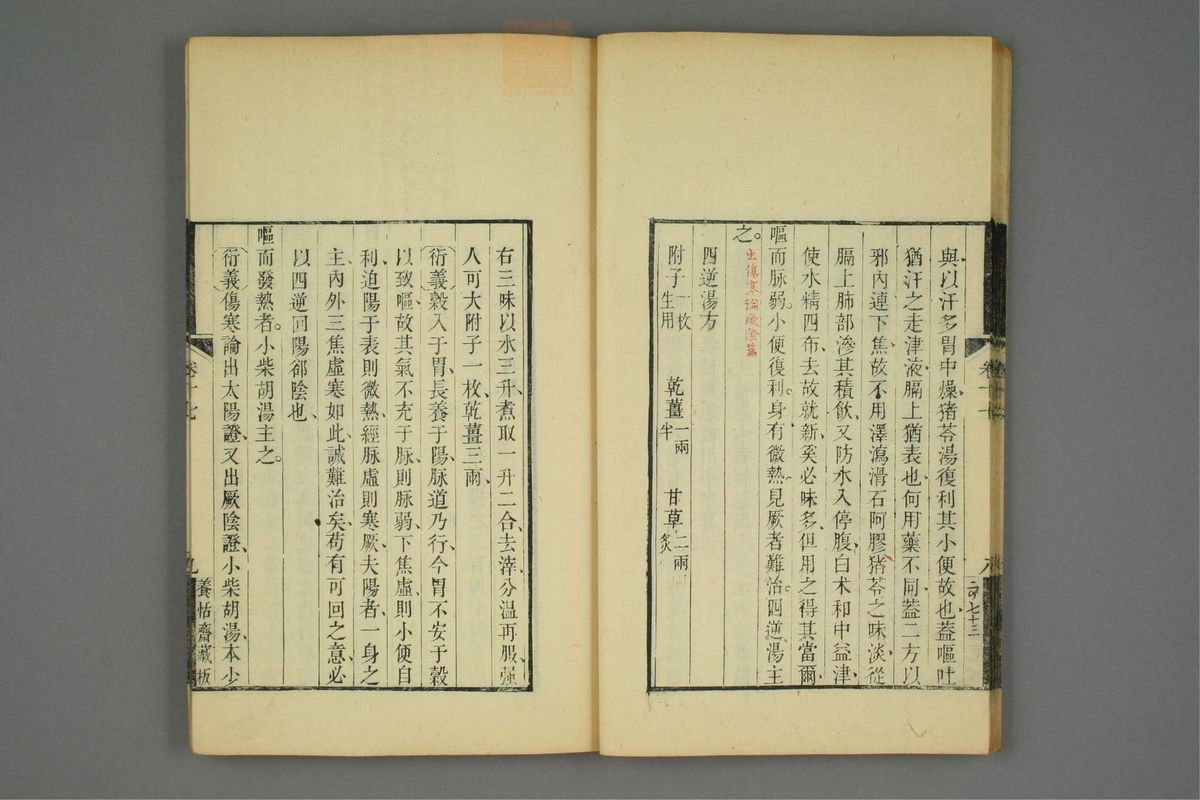 與以汗多胃中燥猪苓湯復利其小便故也蓋嘔吐
猶汗之走津液膈上猶表也何用藥不同蓋二方以
邪內連下焦故不用澤瀉滑石阿膠猪苓之味淡從
膈上肺部滲其積飮又防水入停腹白术和中益津
使水精四布去故就新奚必味多但用之得其當爾
嘔而脉弱。小便復利。身有微熱。見厥者難治。四逆湯主
之。
出傷寒論厥陰篇
四逆湯方
附子一枚生用 乾薑一兩半 甘草二兩炙
卷十七
八
右三味以水三升、煮取一升二合、去滓、分溫再服、强
人可大附子一枚、乾薑三兩、
衍義穀入于胃、長養于陽、脉道乃行、今胃不安于穀
以致嘔故其氣不充于脉、則脉弱、下焦虛、則小便自
利、迫陽于表則微熱、經脉虛則寒厥、夫陽者、一身之
主、內外三焦虛寒如此、誠難治矣、苟有可回之意、必
以四逆回陽郤陰也、
嘔而發熱者。小柴胡湯主之。
衍義傷寒論出太陽證、又出厥陰證、小柴胡湯、本少
卷十七
九
養恬齋藏板